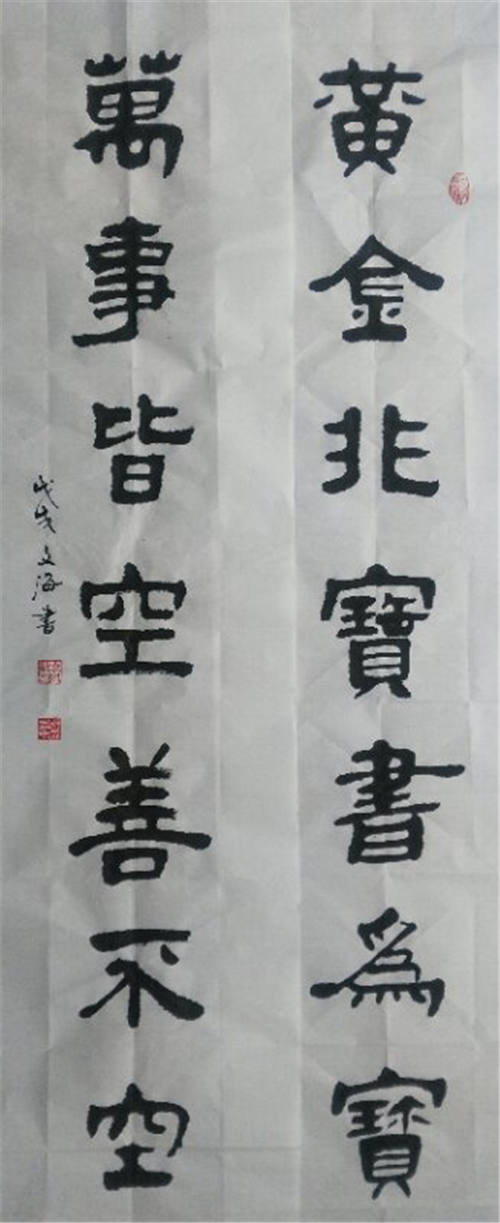 黄金非寶書為寶
萬事皆空善不空
戊戌文海書